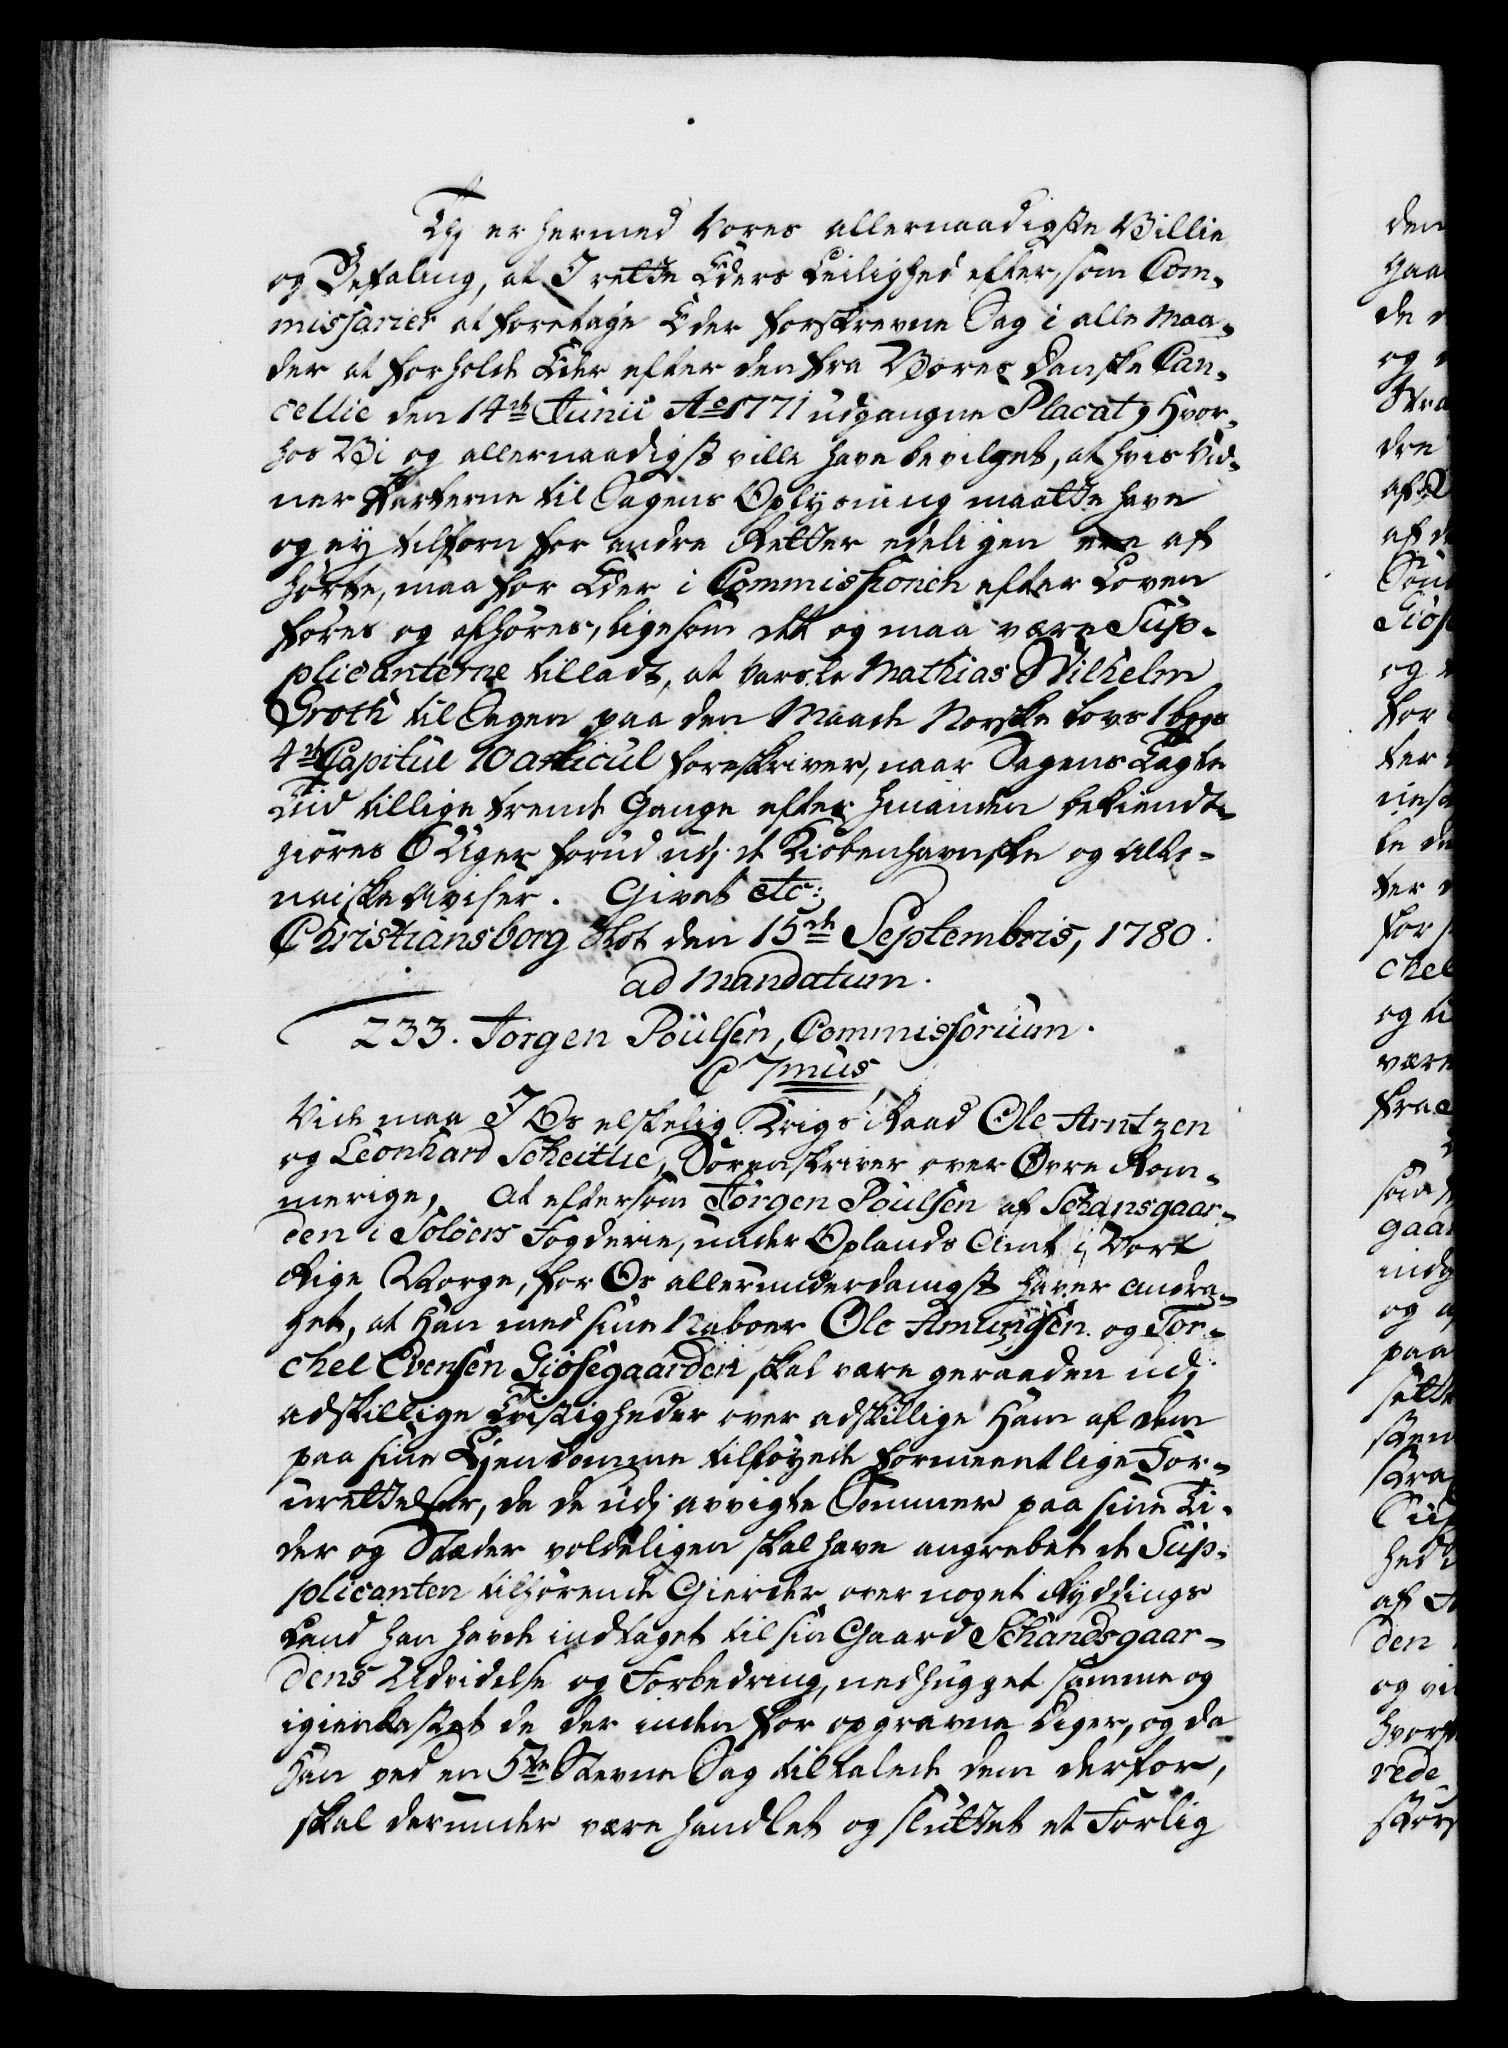 Thj er hermed Vores allernaadigste Villie
og Befaling, at I rette Eders Leilighed efter, som Com-
missarier at foretage Eder forskrevne Sag i alle Maa-
der at forholde Eder efter den fra Vores Danske Can-
cellie den 14de Junii Ao 1771 udgangne Placat, Hvor-
hos Vi og allernaadigst ville have bevilget, at hvis Vid-
ner Parterne til Sagens Oplysning maatte have
og ey tilforn for andre Retter edeligen ere af
hørte, maa for Eder i Commissionen efter Loven
føres og afhøres, ligesom det og maa være Sup-
plicanterne tilladt, at varsle Mathias Wilhelm
Groth til Sagen paa den Maade Norske Lovs 1 bogs
4de Capitul 10 articul foreskriver, naar Sagens Lagte
Tid tillige trende Gange efter hinanden bekiendt-
giøres 6 Uger forud udj de Kiøbenhavnske og Alto-
naiske Aviser. Givet etc:
Christiansborg Slot den 15de Septembris, 1780.
ad Mandatum.
233. Jørgen Poulsen, Commissorium.
C 7mus
Vide maa I Os elskelig Krigs Raad Ole Arntzen
og Leonhard Scheitlie, Sorenskriver over Øvre Rom-
merige, At eftersom Jørgen Poulsen af Schansgaar-
den i Soløers Fogderie, under Oplands Amt i Vort
Rige Norge, for Os allerunderdanigst haver andra-
get, at Han med sine Naboer Ole Amundsen og Tor-
chel Evensen Giøsegaarden skal være geraaden udj
adskillige Tvistigheder over adskillige Ham af dem
paa sine Ejendomme tilføyede formeentlige For-
urettelser, da de udj avvigte Sommer paa sine Ti-
der og Stæder voldeligen skal have angrebet de Sup-
plicanten tilhørende Gierder over noget Ryddings
Land han havde indtaget til sin Gaard Schandsgaar-
dens Udvidelse og Forbedring, nedhugget samme og
igienkastet de der inden for opgravne Diger, og da
han ved en 5te Stevne Sag tiltalede dem derfor,
skal derunder være handlet og sluttet et Forlig